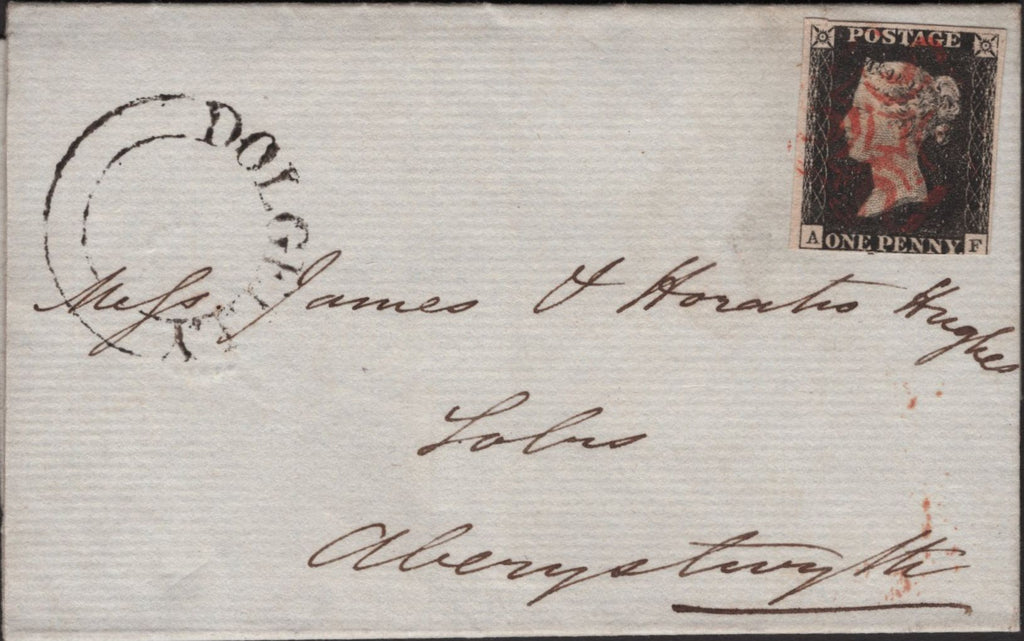 POSTAGE
A ONE PENNY F
DOLGELLY
Messrs James & Horatio Hughes
Solrs
Aberystwyth